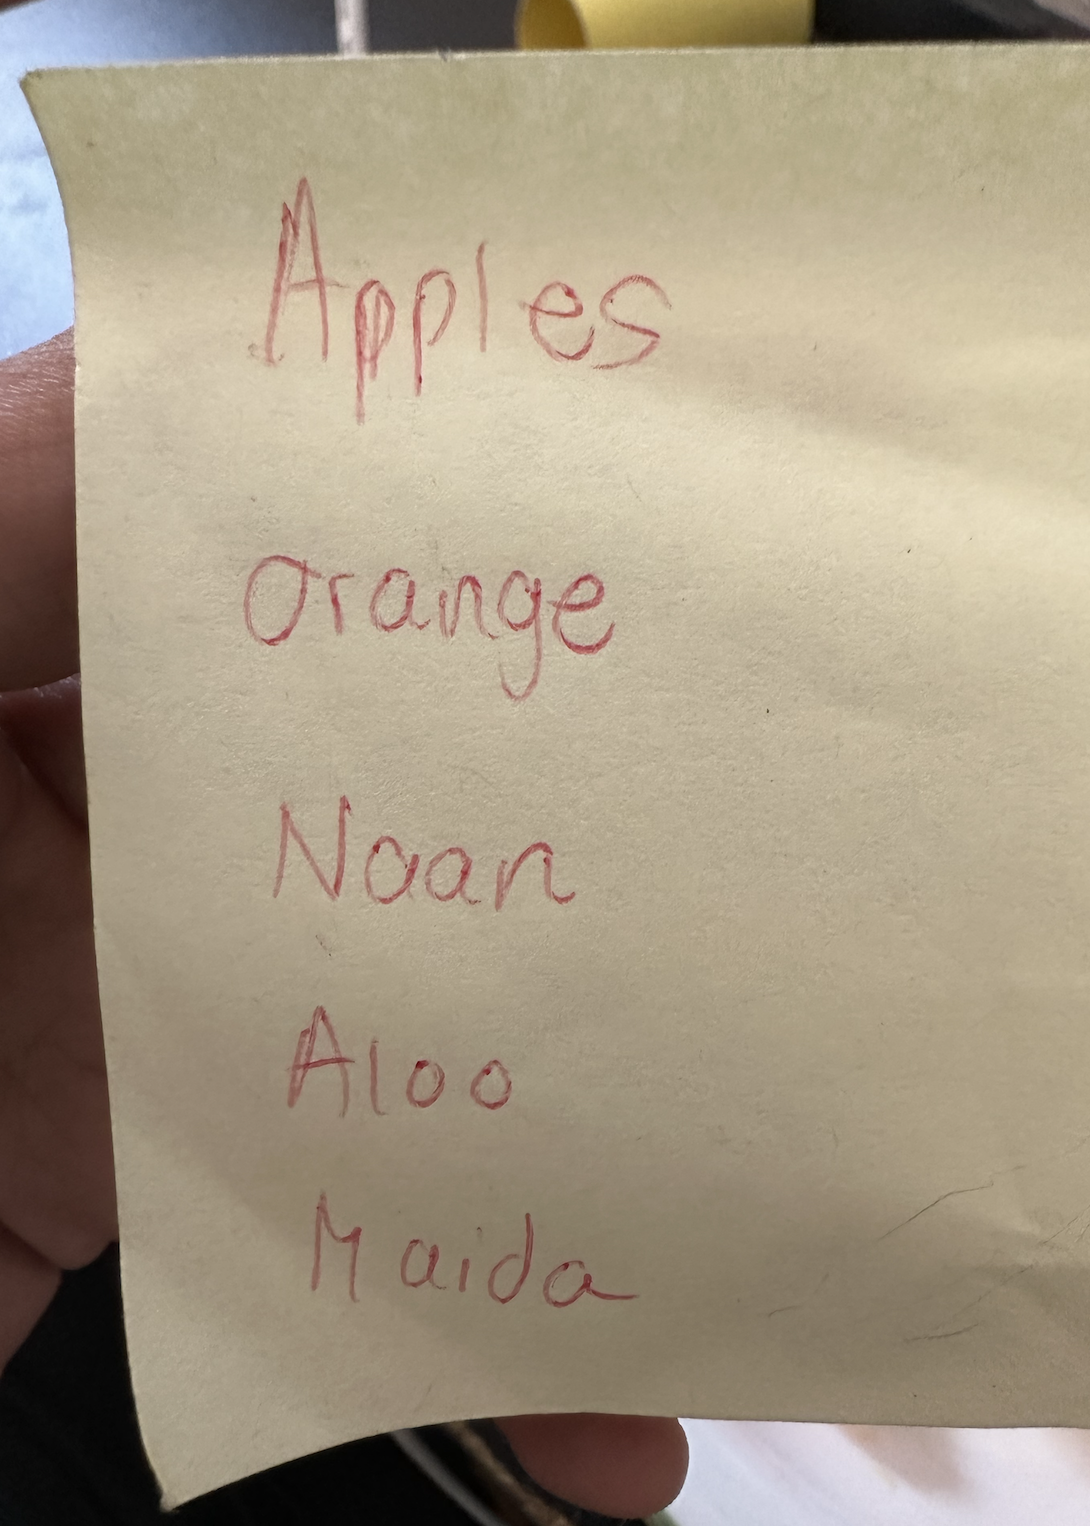 Apples
Orange
Naan
Aloo
Maida